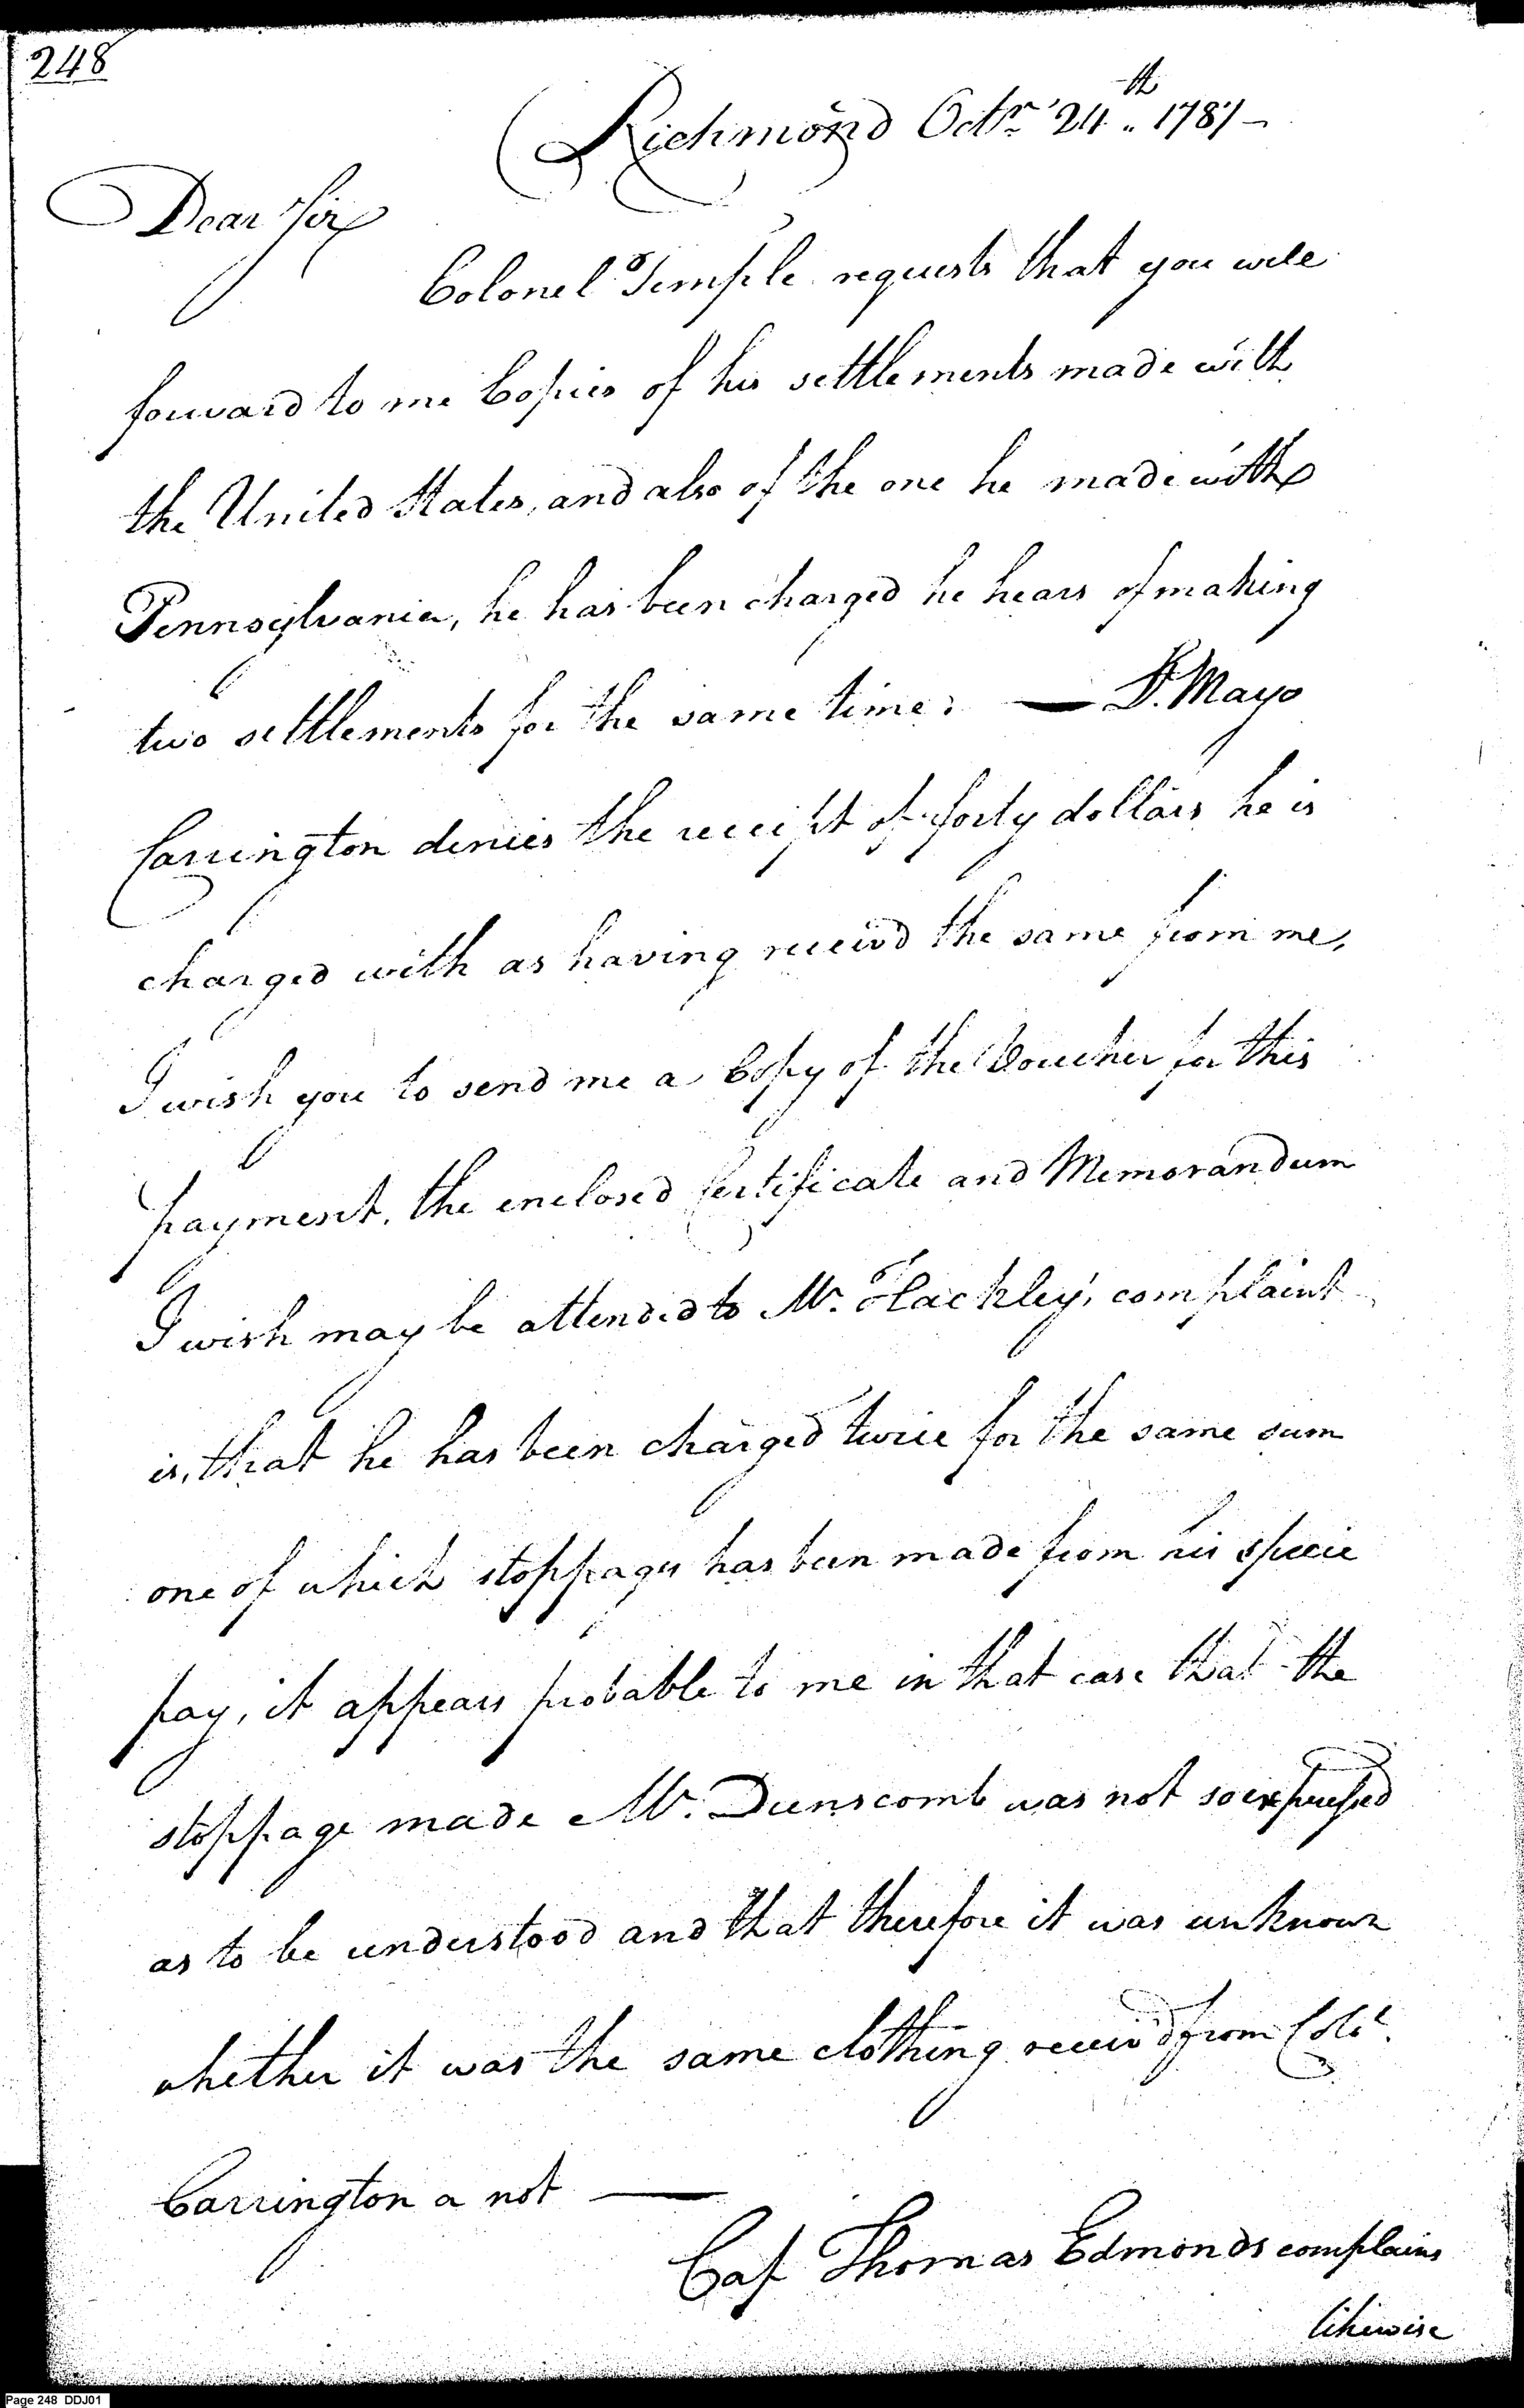 248
Richmond Octr. 24th. 1787-
Dear Sir
Colonel Temple requests that you will
forward to me Copies of his settlements made with
the United States, and also of the one he made with
Pennsylvania, he has been charged he hears of making
two settlements for the same time. — Lt. Mayo
Carrington denies the receipt of forty dollars he is
charged with as having receivd the same from me,
I wish you to send me a Copy of the Voucher for this
payment. the enclosed Certificate and Memorandum
I wish may be attended to Mr. Hackley's complaint
is, that he has been charged twice for the same sum
one of which stoppages has been made from his specie
pay, it appears probable to me in that case that the
stoppage made Mr. Dunscomb was not so expressed
as to be understood and that therefore it was unknown
whether it was the same clothing receivd from Colo.
Carrington a not —
Cap Thomas Edmonds complains
likewise
Page 248 DDJ01